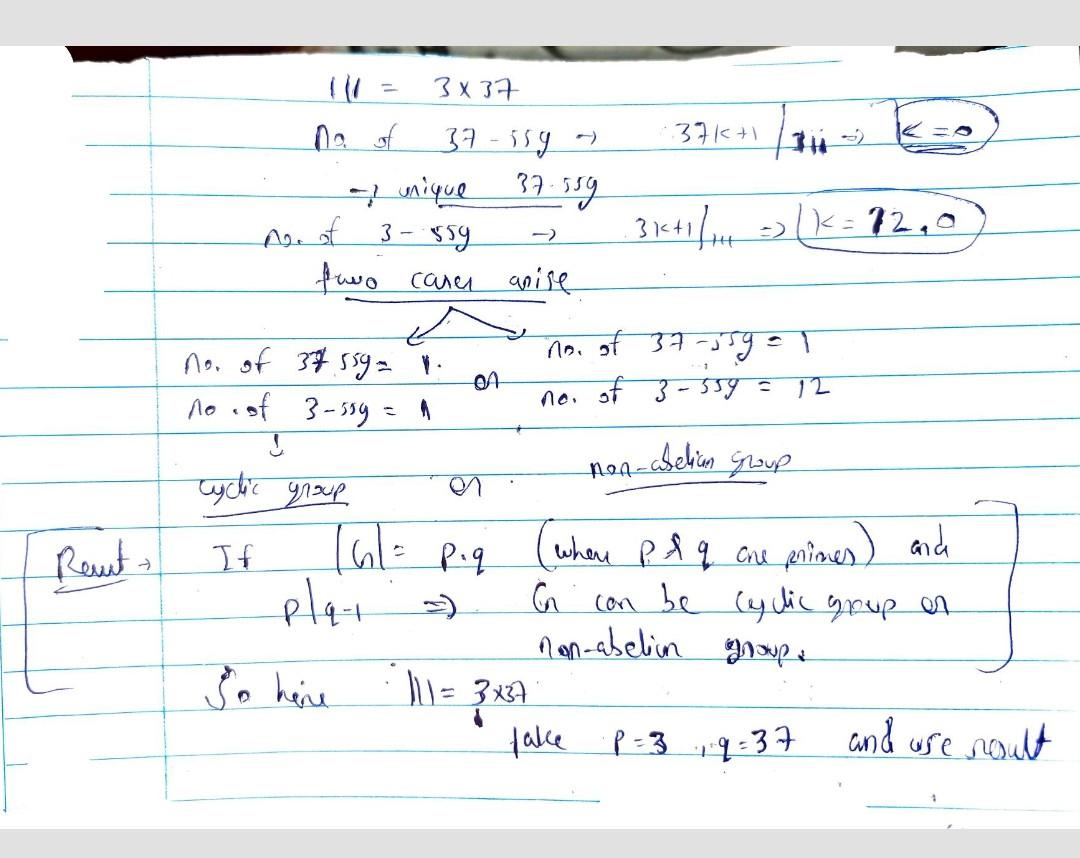 111 = 3 x 37
No. of 37 - ssg → 37k+1 / 111 ⇒ k = 0
→ unique 37-ssg
no. of 3 - ssg → 3k+1 / 111 ⇒ k = 12, 0
two cases arise
no. of 37 ssg = 1. or no. of 37 - ssg = 1
no. of 3 - ssg = 1 no. of 3 - ssg = 12
↓
cyclic group or non-abelian group
Result → If |G| = p.q (where p & q are primes) and
p/q-1 ⇒ G can be cyclic group or
non-abelian group.
So here 111 = 3x37
take p=3, q=37 and use result